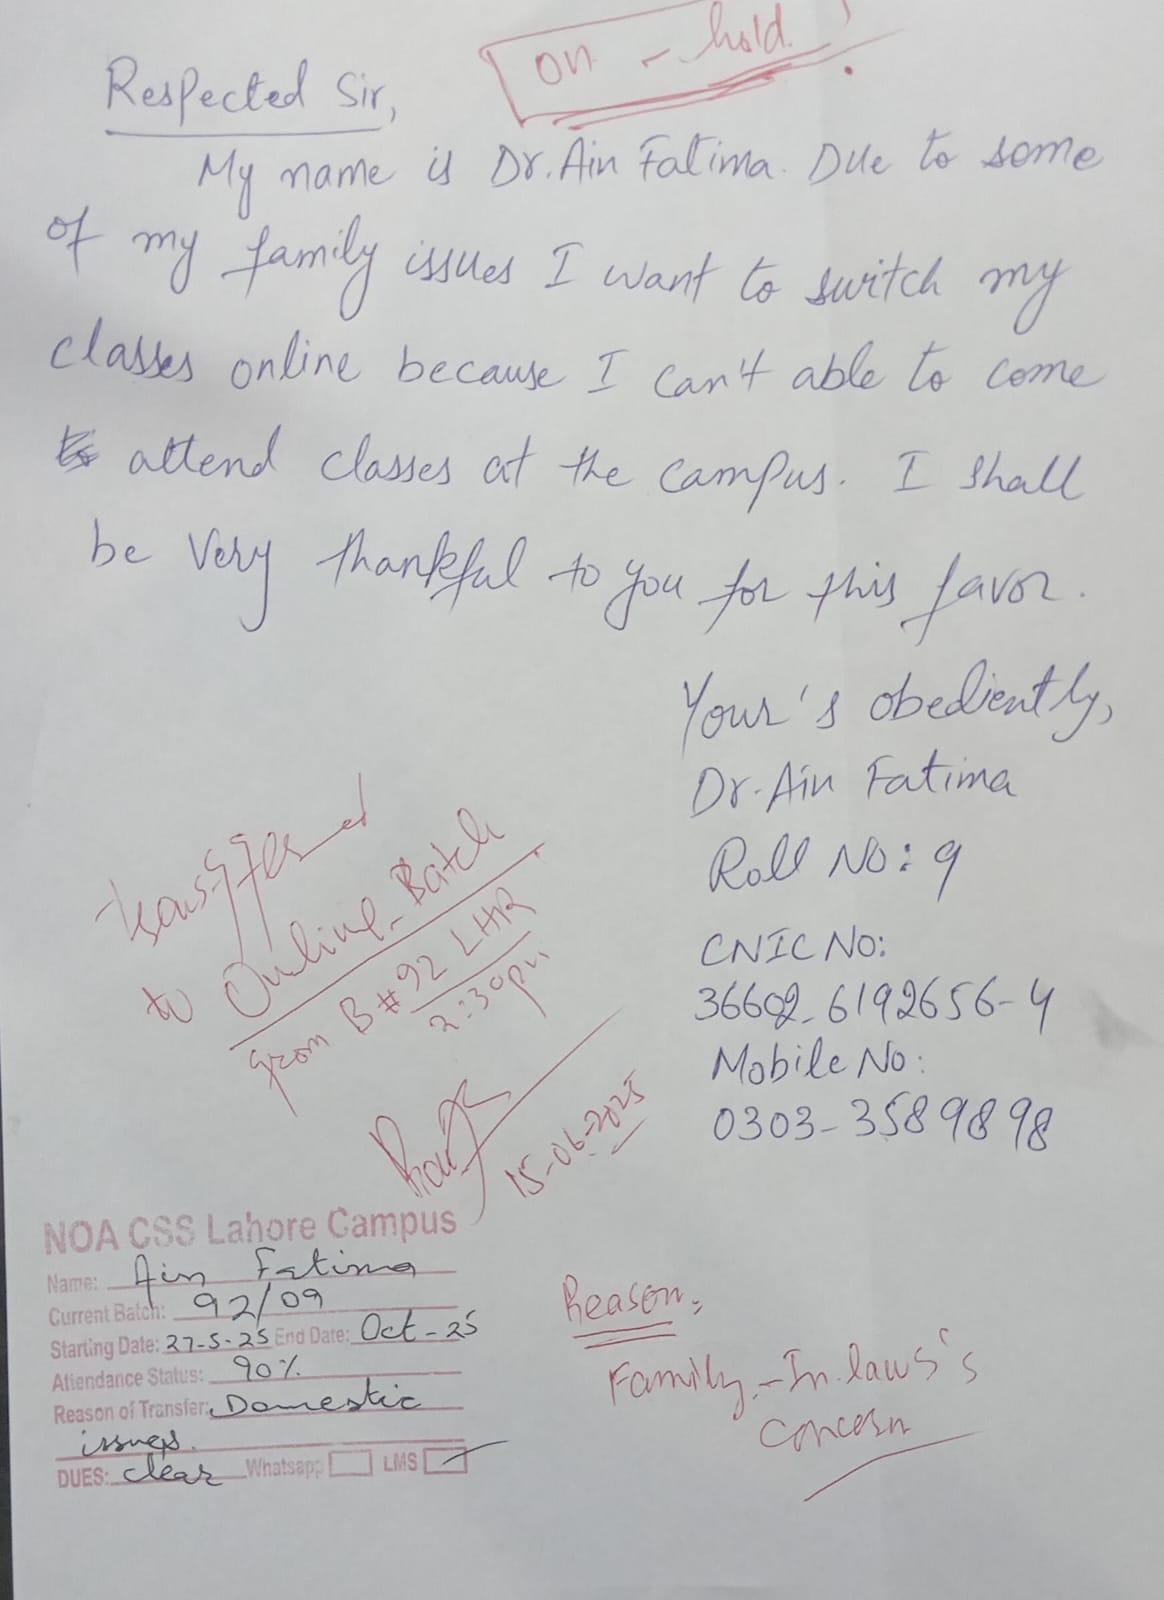 on - hold.
Respected Sir,
My name is Dr. Ain Fatima. Due to some
of my family issues I want to switch my
classes online because I can't able to come
attend classes at the campus. I shall
be very thankful to you for this favor.
Your's obediently,
Dr. Ain Fatima
Roll No: 9
CNIC No:
36602-6192656-4
Mobile No:
0303-3589898
transferred
to Online-Batch
from B#92 LHR
2:30pm
15-06-2025
NOA CSS Lahore Campus
Name: Ain Fatima
Current Batch: 92/09
Starting Date: 27-5-25 End Date: Oct-25
Attendance Status: 90%
Reason of Transfer: Domestic
issues.
DUES: clear Whatsapp LMS
Reason:
Family-In laws's
concern